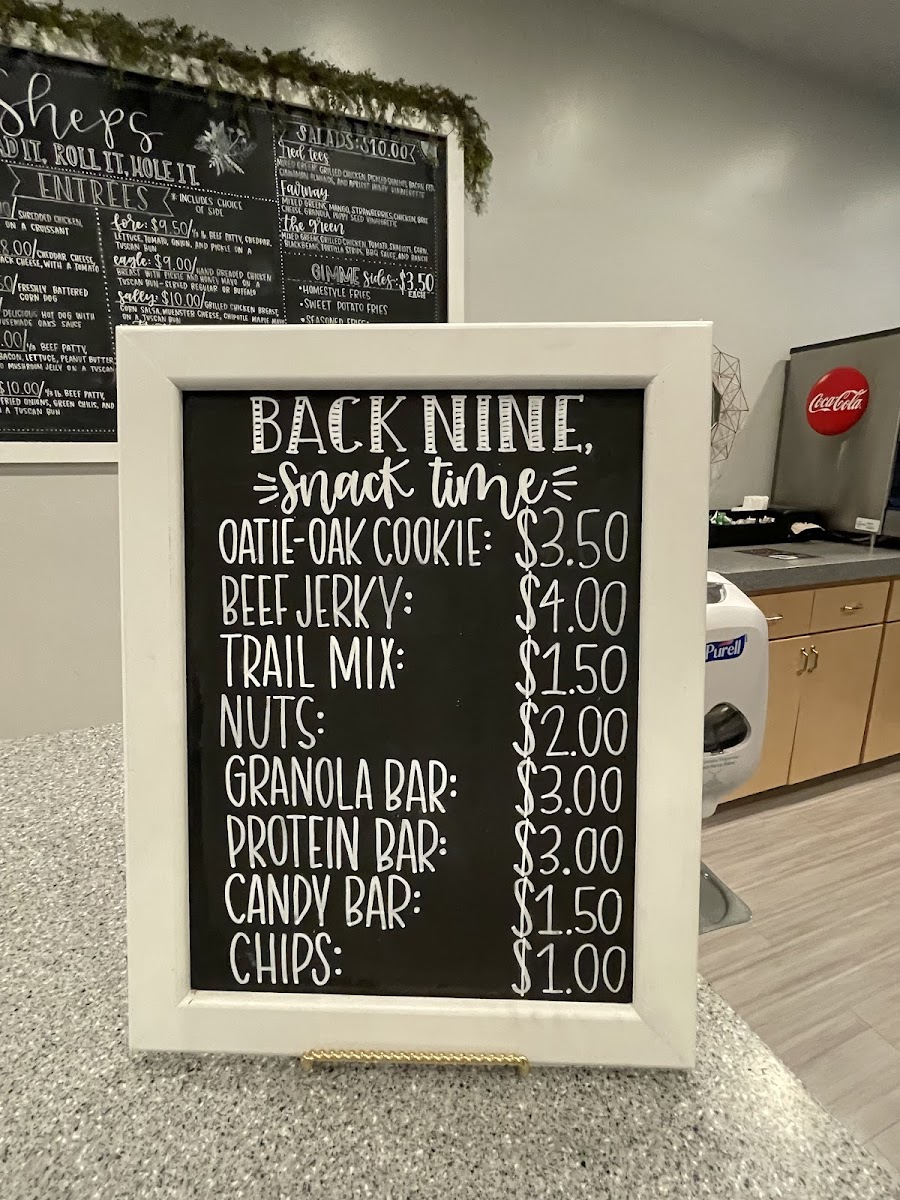 Sheps
ROLL IT, HOLE IT
ENTREES
* INCLUDES CHOICE
OF SIDE
SHREDDED CHICKEN,
ON A CROISSANT
8.00/CHEDDAR CHEESE,
JACK CHEESE, WITH A TOMATO
/FRESHLY BATTERED
CORN DOG
DELICIOUS HOT DOG WITH
HOUSEMADE OAKS SAUCE
.00/⅓ LB BEEF PATTY,
BACON, LETTUCE, PEANUT BUTTER,
MUSHROOM JELLY ON A TUSCAN
$10.00/⅓ LB BEEF PATTY,
FRIED ONIONS, GREEN CHILIS, AND
A TUSCAN BUN
fore: $9.50/⅓ LB BEEF PATTY, CHEDDAR,
LETTUCE, TOMATO, ONION, AND PICKLE ON A
TUSCAN BUN
eagle: $9.00/HAND BREADED CHICKEN
BREAST WITH PICKLE AND HONEY MAYO ON A
TUSCAN BUN-SERVED REGULAR OR BUFFALO
sally: $10.00/GRILLED CHICKEN BREAST,
CORN SALSA, MUENSTER CHEESE, CHIPOTLE MAPLE MAYO
ON A TUSCAN BUN
SALADS: $10.00
red tees
MIXED GREENS, GRILLED CHICKEN, PICKLED SHALLOTS, BACON, FETA,
CINNAMON ALMONDS, AND APRICOT HONEY VINAIGRETTE
Fairway
MIXED GREENS, MANGO, STRAWBERRIES, CHICKEN, BRIE
CHEESE, GRANOLA, POPPY SEED VINAIGRETTE
the green
MIXED GREENS, GRILLED CHICKEN, TOMATO, SHALLOTS, CORN,
BLACK BEANS, TORTILLA STRIPS, BBQ SAUCE, AND RANCH
GIMME sides: $3.50
EACH
•HOMESTYLE FRIES
•SWEET POTATO FRIES
•SEASONED FRIES
BACK NINE,
snack time
OATIE-OAK COOKIE: $3.50
BEEF JERKY: $4.00
TRAIL MIX: $1.50
NUTS: $2.00
GRANOLA BAR: $3.00
PROTEIN BAR: $3.00
CANDY BAR: $1.50
CHIPS: $1.00
Coca-Cola
Purell